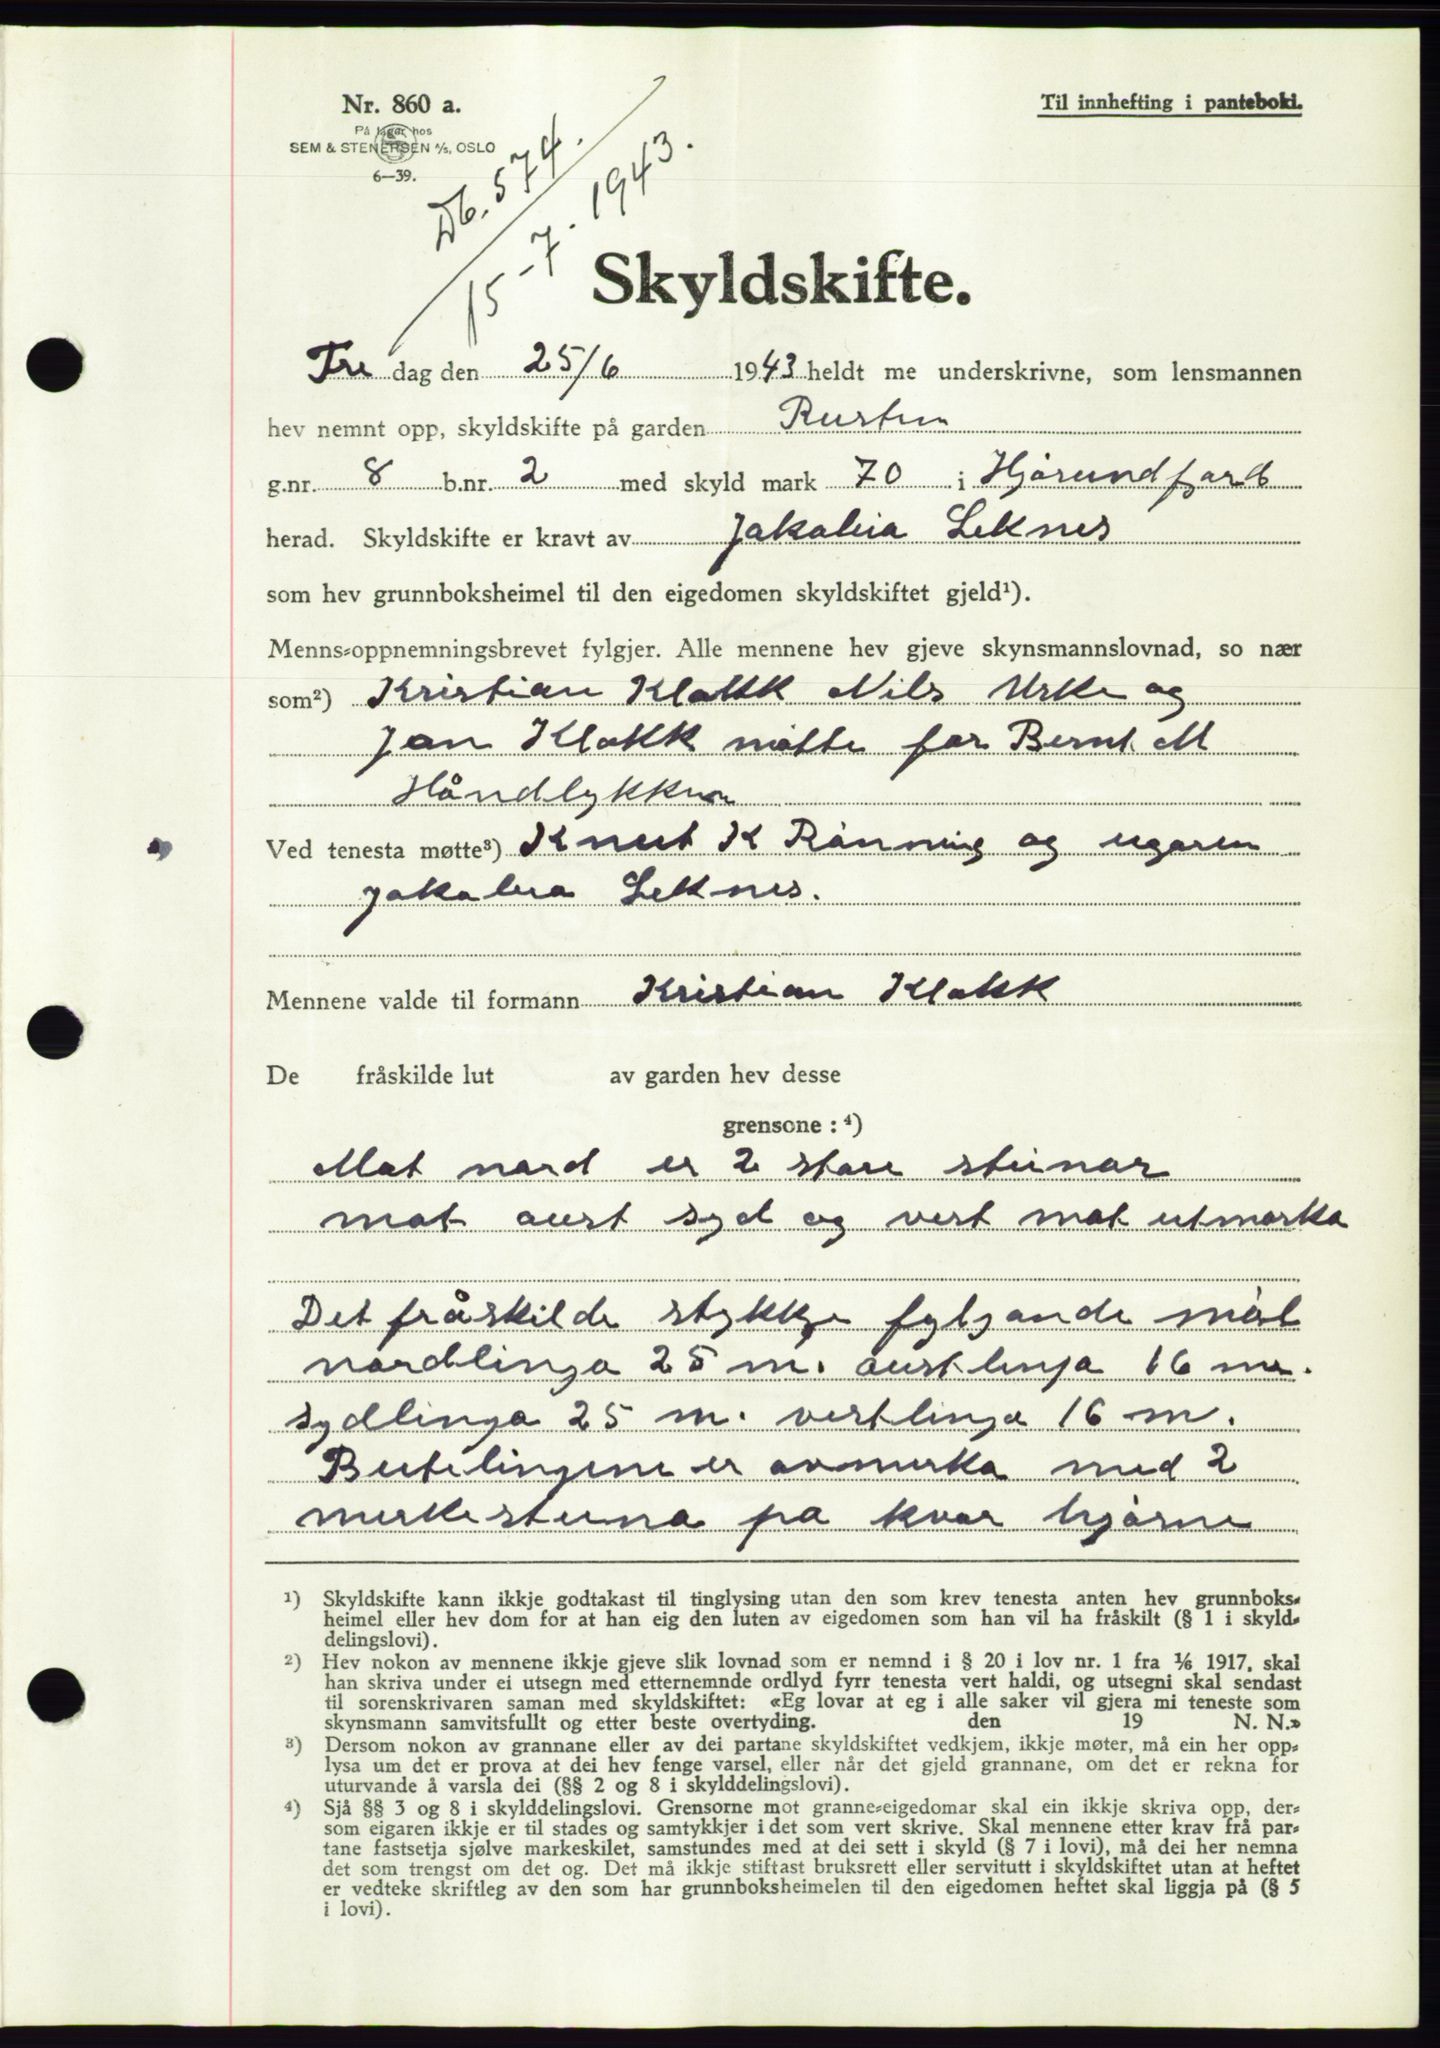 Nr. 860 a.
Til innhefting i panteboki.
På lager hos
SEM & STENERSEN A/S, OSLO
6—39.
Db. 574.
15-7. 1943.
Skyldskifte.
Fre dag den 25/6 1943 heldt me underskrivne, som lensmannen
hev nemnt opp, skyldskifte på garden Rusten
g.nr. 8 b.nr. 2 med skyld mark 70 i Hjørundfjord
herad. Skyldskifte er kravt av Jakobia Leknes
som hev grunnboksheimel til den eigedomen skyldskiftet gjeld¹).
Menns-oppnemningsbrevet fylgjer. Alle mennene hev gjeve skynsmannslovnad, so nær
som²) Kristian Klokk Nils Urke og
Jon Klokk møtte for Bernt M
Håndlykken
Ved tenesta møtte³) Knut K Rønning og eigaren
Jakobia Leknes.
Mennene valde til formann Kristian Klokk
De fråskilde lut av garden hev desse
grensone : ⁴)
Mot nord er 2 store steinar
mot aust syd og vest mot utmarka
Det fråskilde stykkje fylgjande mål
nordlinja 25 m. austlinja 16 m.
sydlinja 25 m. vestlinja 16 m.
Bytelinjene er avmerka med 2
merkesteina på kvar hjørne
¹) Skyldskifte kann ikkje godtakast til tinglysing utan den som krev tenesta anten hev grunnboks-
heimel eller hev dom for at han eig den luten av eigedomen som han vil ha fråskilt (§ 1 i skyld-
delingslovi).
²) Hev nokon av mennene ikkje gjeve slik lovnad som er nemnd i § 20 i lov nr. 1 fra 1/6 1917, skal
han skriva under ei utsegn med etternemnde ordlyd fyrr tenesta vert haldi, og utsegni skal sendast
til sorenskrivaren saman med skyldskiftet: «Eg lovar at eg i alle saker vil gjera mi teneste som
skynsmann samvitsfullt og etter beste overtyding. den 19 N. N.»
³) Dersom nokon av grannane eller av dei partane skyldskiftet vedkjem, ikkje møter, må ein her opp-
lysa um det er prova at dei hev fenge varsel, eller når det gjeld grannane, om det er rekna for
uturvande å varsla dei (§§ 2 og 8 i skylddelingslovi).
⁴) Sjå §§ 3 og 8 i skylddelingslovi. Grensorne mot granne-eigedomar skal ein ikkje skriva opp, der-
som eigaren ikkje er til stades og samtykkjer i det som vert skrive. Skal mennene etter krav frå par-
tane fastsetja sjølve markeskilet, samstundes med at dei sett i skyld (§ 7 i lovi), må dei her nemna
det som trengst om det og. Det må ikkje stiftast bruksrett eller servitutt i skyldskiftet utan at heftet
er vedteke skriftleg av den som har grunnboksheimelen til den eigedomen heftet skal liggja på (§ 5
i lovi).